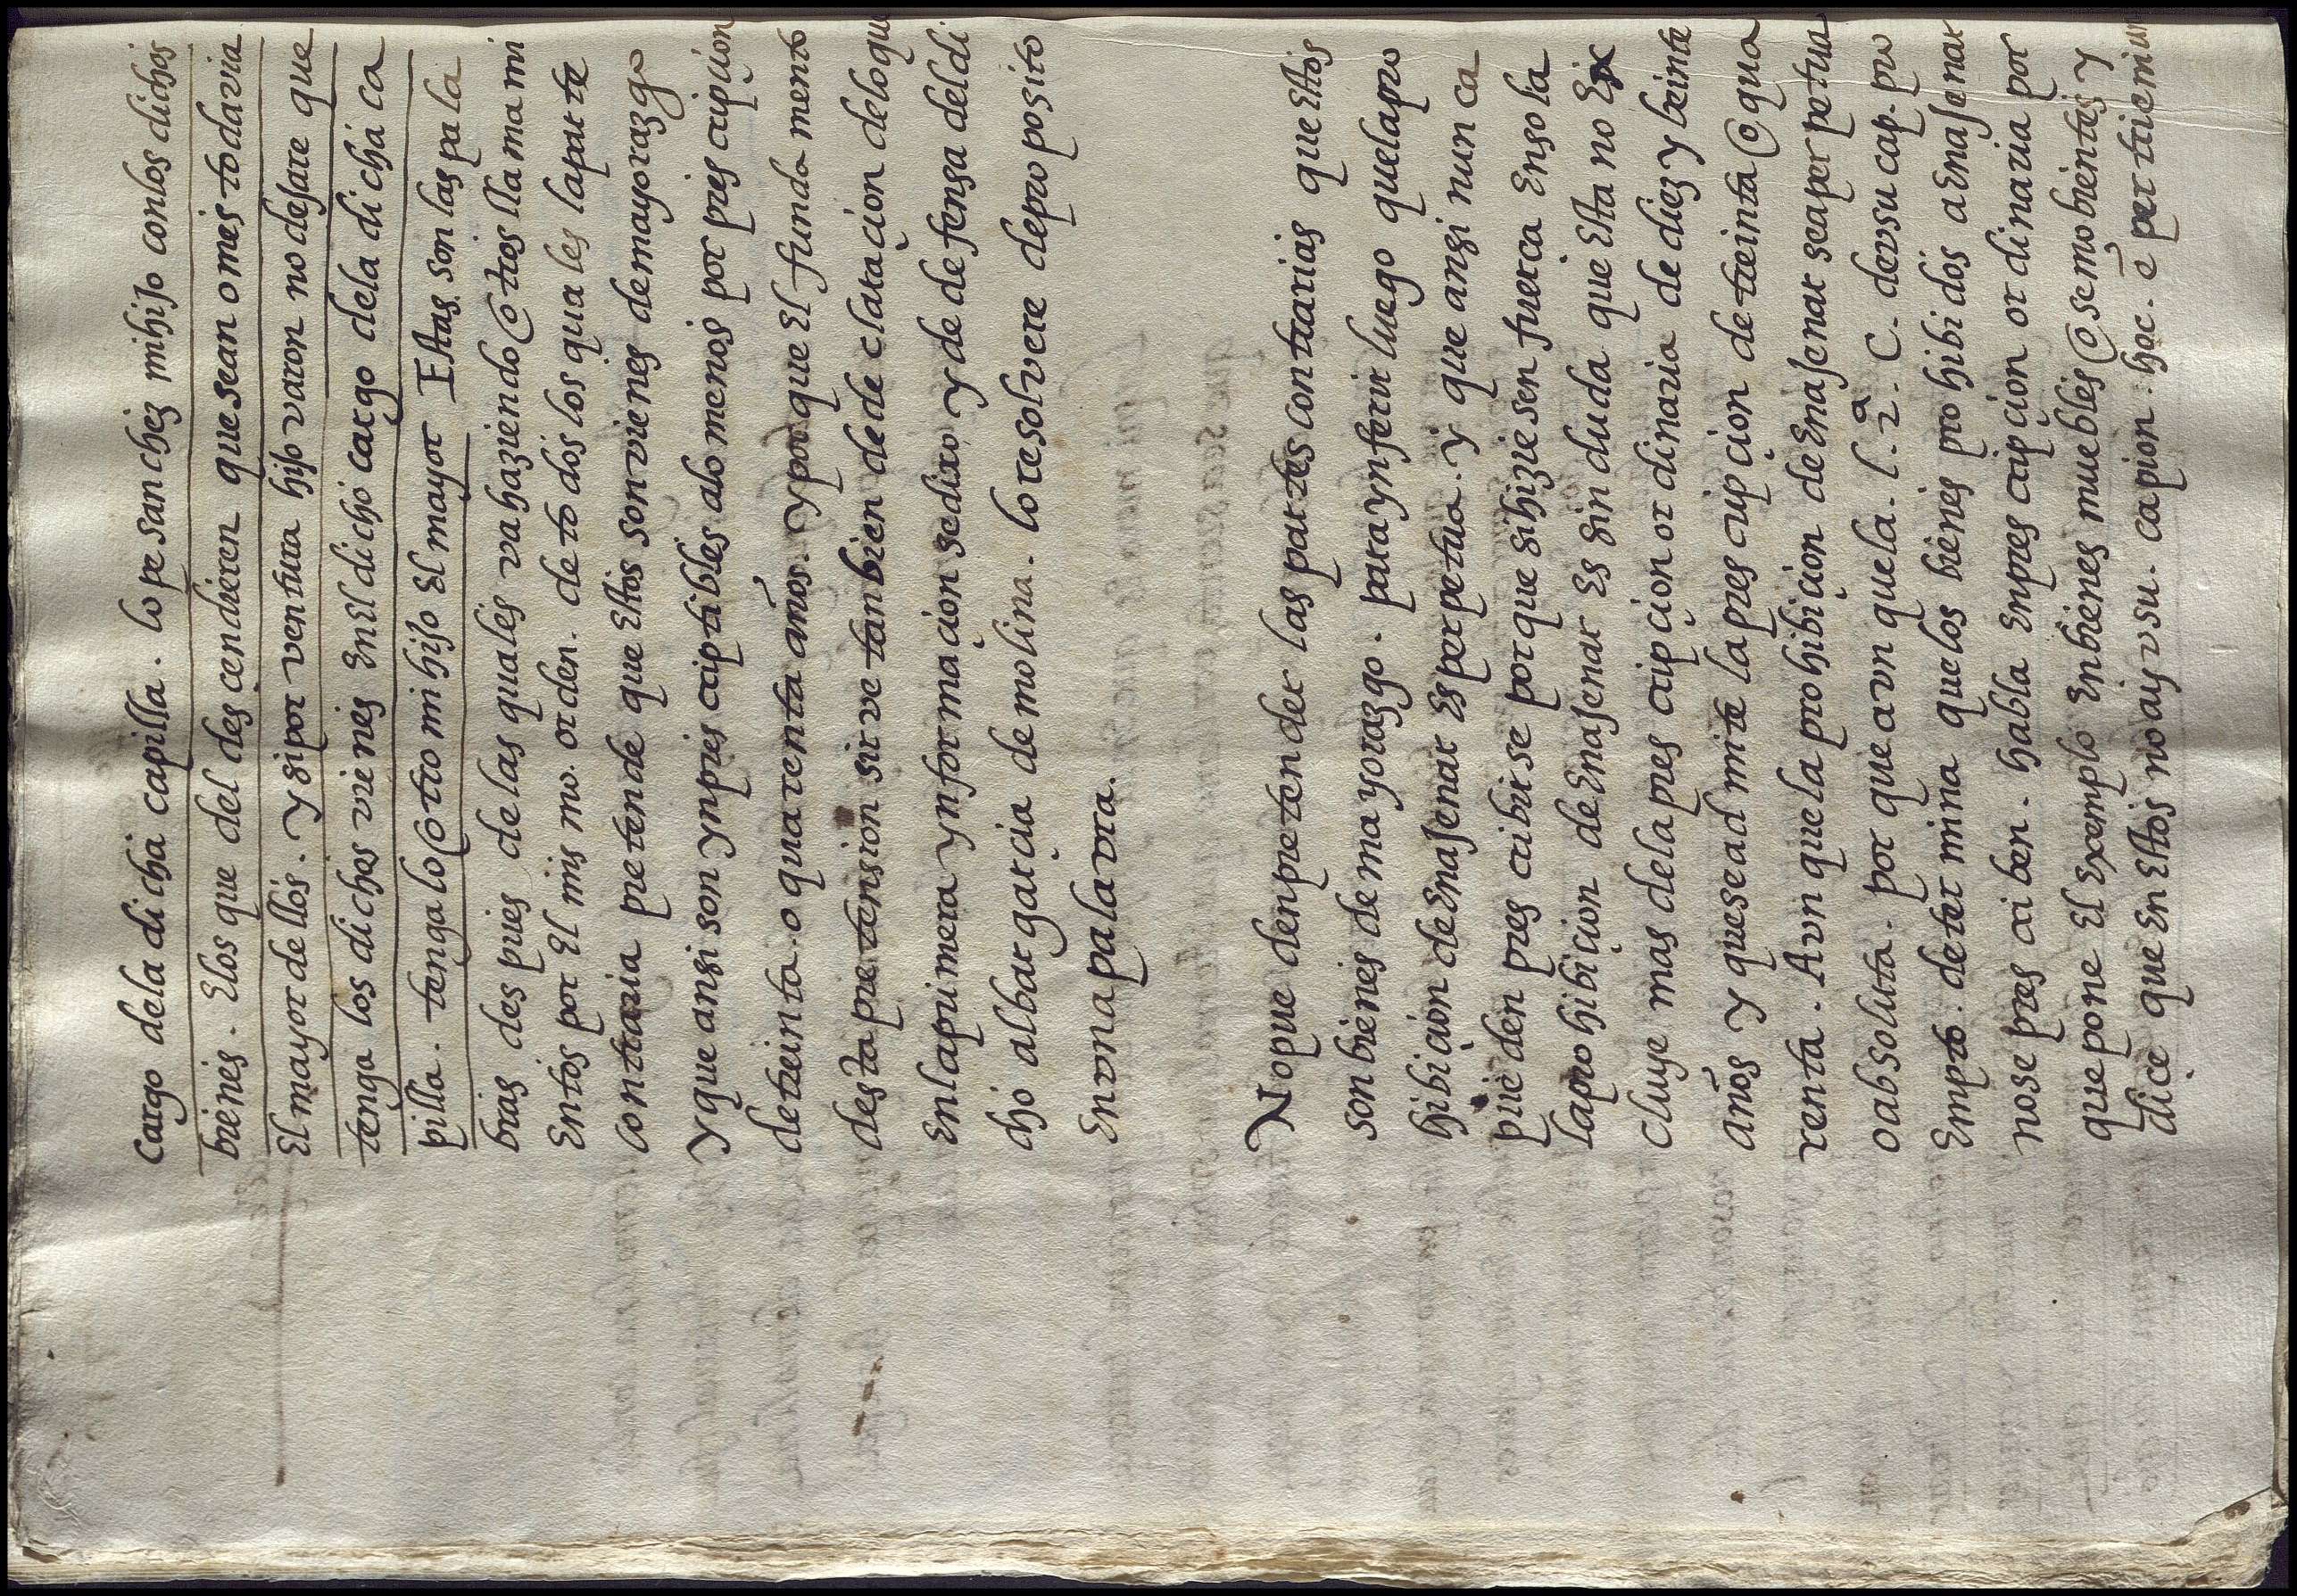 cargo dela dicha capilla. lope sanchez mi hijo con los dichos
bienes. Elos que del descendieren que sean omes todavia
El mayor dellos. Y si por ventura hijo varon no dejare que
tenga los dichos vienes En El dicho cargo dela dicha ca
pilla. tengalo Otro mi hijo El mayor Estas son las pala
bras despues delas quales va haziendo Otros llamami
Entos por El mismo. orden. de todos los quales la parte
contraria pretende que Estos son vienes de mayorazgo
Y que ansi son ynprescriptibles alo menos por prescripçion
de treinta. o quarenta años. Y porque El fundamento
desta pretension sirve tanbien de declaraçion delo que
En la primera ynformaçion se dixo, Y de defensa del di
cho albar garçia de molina. lo resolvere de proposito
En vna palavra.
No pueden pretender las partes contrarias que Estos
son bienes de mayorazgo. para ynferir luego que la pro
hibiçion de Enajenar Es perpetua. Y que ansi nunca
pueden prescribirse porque si hiziesen fuerça En sola
la prohibiçion de Enajenar Es sin duda que Esta no Ex
cluye mas dela prescripçion ordinaria de diez y beinte
años Y que se admite la prescripçion de treinta O qua
renta. Avnque la prohibiçion de Enajenar sea perpetua
o absoluta. porque avnque la. l. 2ª. C. de vsucap. pro
Empto. determina que los bienes prohibidos a Enajenar
no se prescriben. habla En prescripçion ordinaria por
que pone El Exemplo En bienes muebles O semobientes Y
diçe que En Estos no ay vsu. capion. hoc. e pertricenium